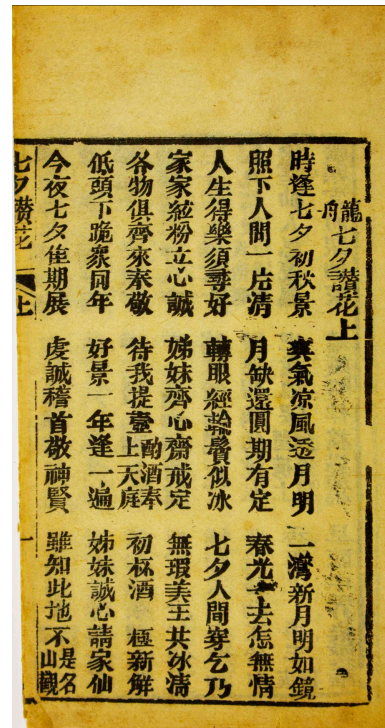 龍舟七夕讃花上
時逢七夕初秋景 爽氣凉風透月明 一灣新月明如鏡
照下人間一片清 月缺還圓期有定 春光一去怎無情
人生得樂須尋好 轉眼經輪鬢似冰 七夕人間穿乞乃
家家粉立心誠 姊妹齊心齋戒定 無瑕美王共冰清
各物俱齊來奉敬 待我提壺酌酒奉上天庭 初杯酒 極新解
低頭下跪衆同年 好景一年逢一遍 姊妹誠心請家仙
今夜七夕隹期展 虔誠稽首敬神賢 雖知此地不是名山觀
七夕讃花 上 一